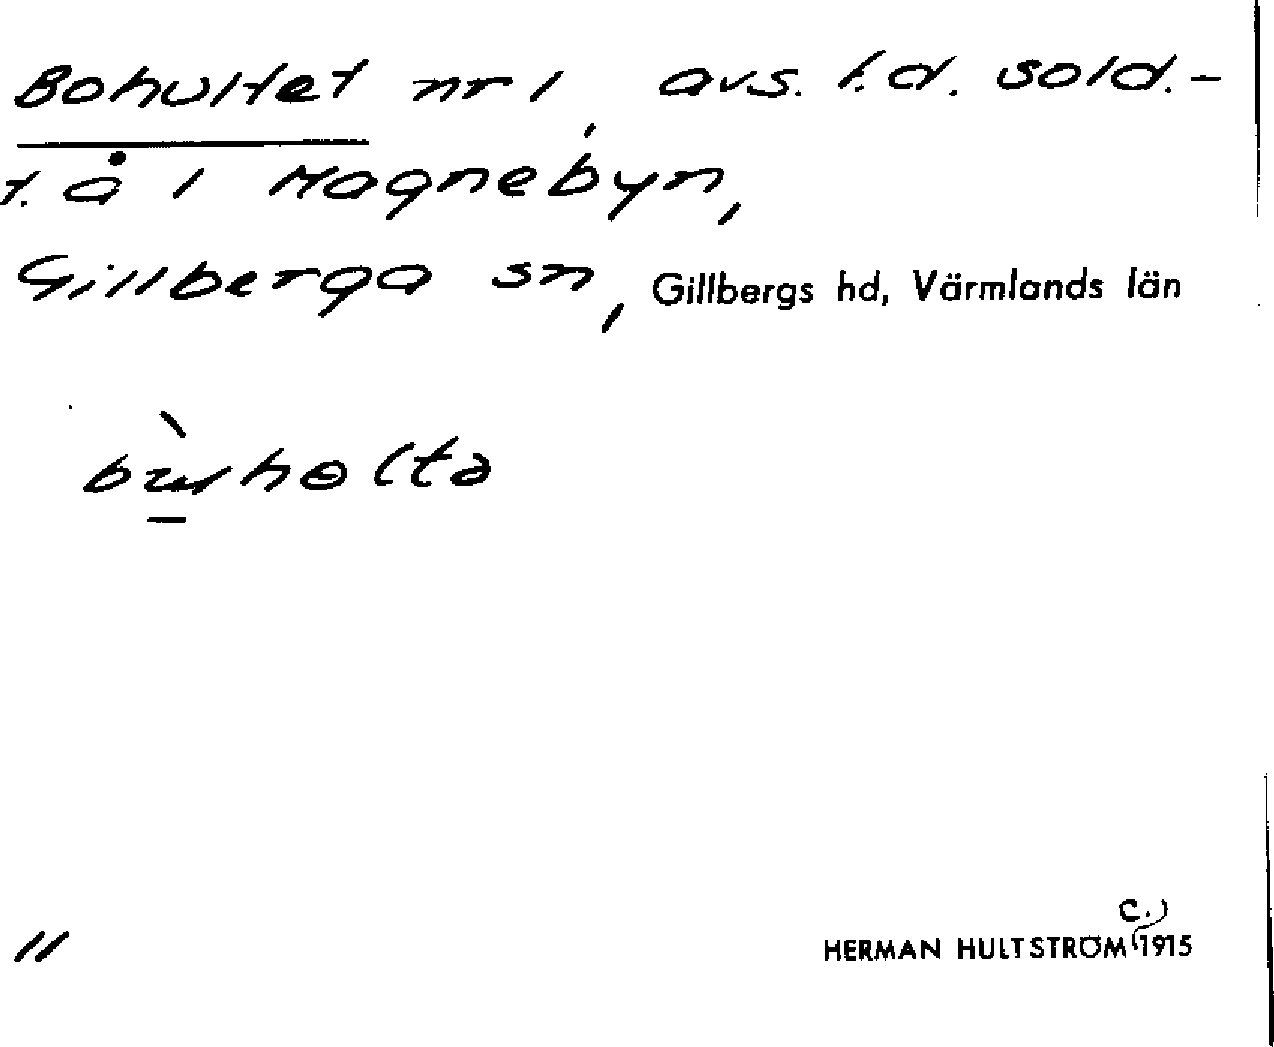 Bohultet nr 1, avs. f.d. sold.-
t. å 1 Magnebyn,
Gillberga sn, Gillbergs hd, Värmlands län
11
c.)
HERMAN HULTSTRÖM 1915